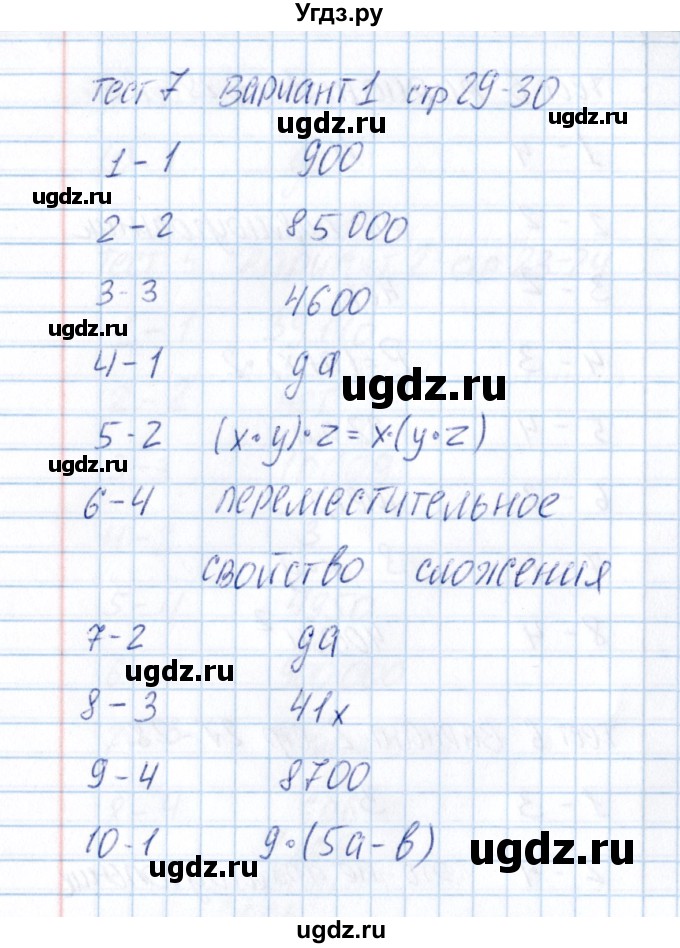 Угдз.ру
тест 7 вариант 1 стр 29-30
ugdz.ru
ugdz.ru
1-1 900
ugdz.ru
2-2 85000
3-3 4600
ugdz.ru
4-1 да
ugdz.ru
5-2 (x•y)•z=x•(y•z)
ugdz.ru
6-4 переместительное
свойство сложения
7-2 да
ugdz.ru
8-3 41x
9-4 8700
10-1 9•(5a-b)
ugdz.ru
ugdz.ru
ugdz.ru